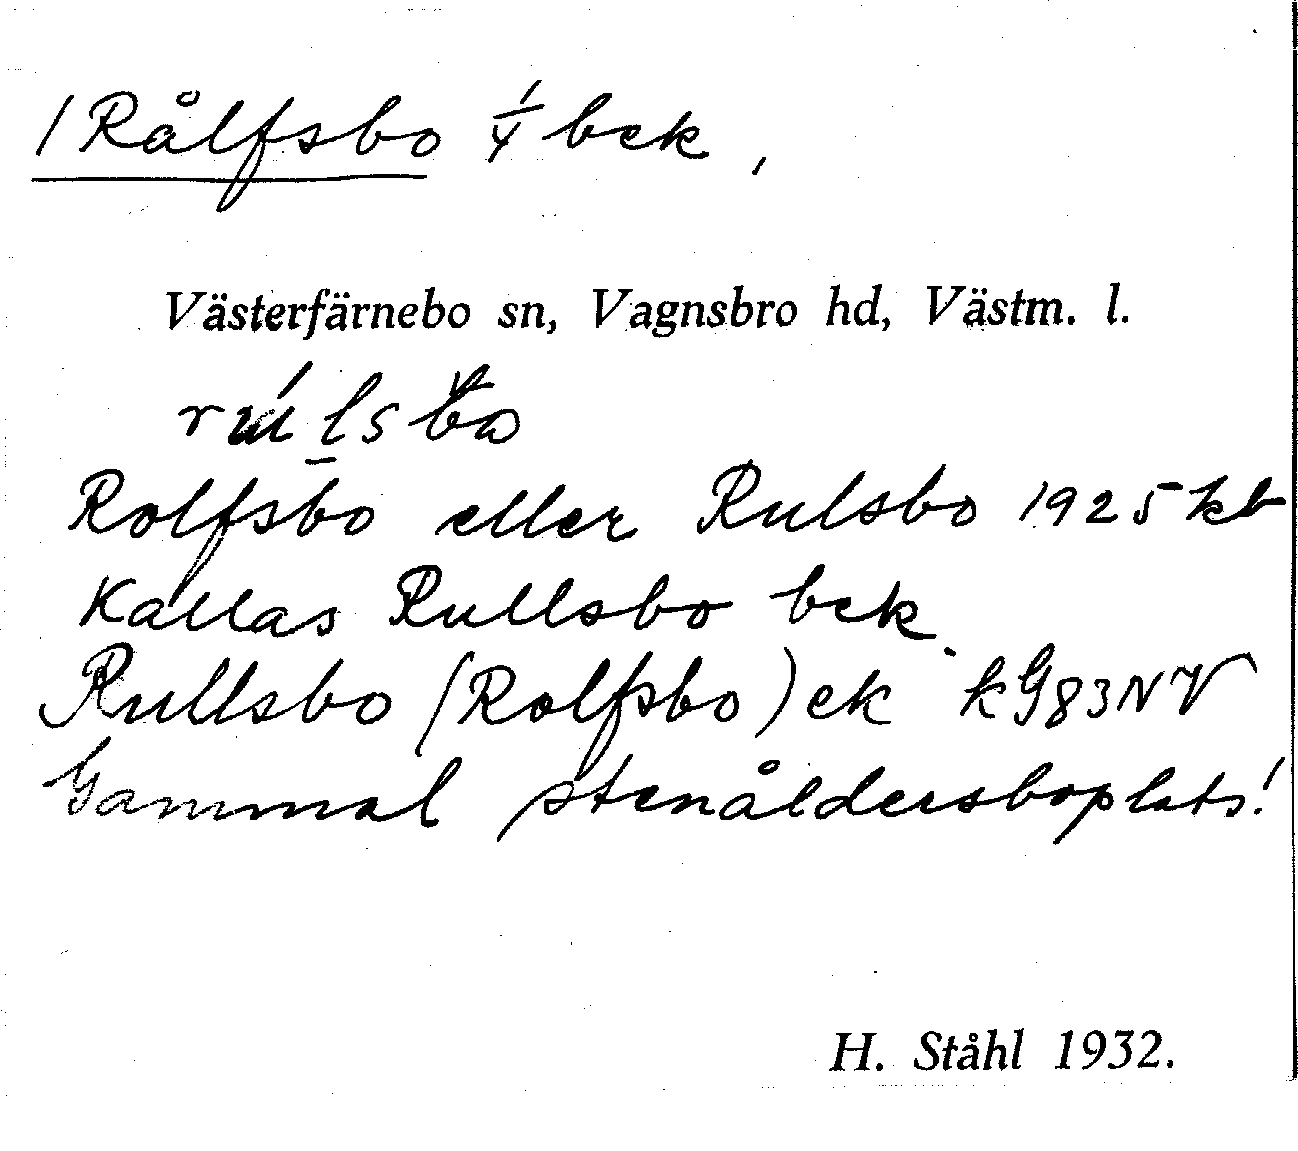 / Rålfsbo 1/4 bek,
Västerfärnebo sn, Vagnsbro hd, Västm. l.
Rolfsbo eller Rulsbo 1925 kb
Kallas Rullsbo bek.
Rullsbo (Rolfsbo) ek kG83NV
Gammal stenåldersboplats!
H. Ståhl 1932.